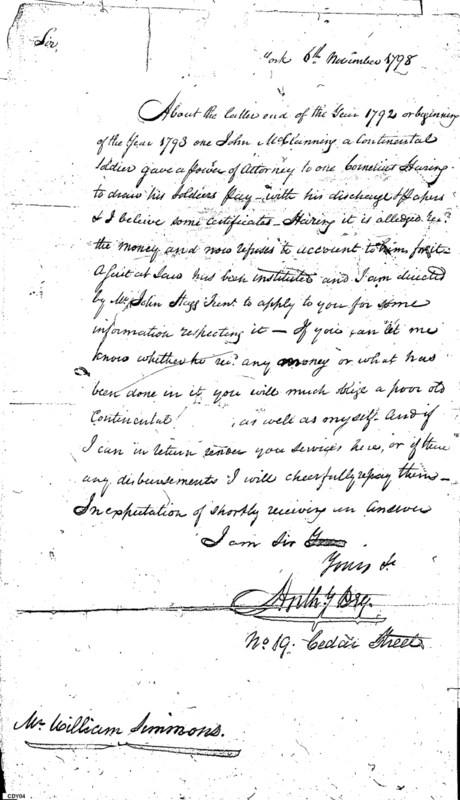 Sir,
York 6th November 1798
About the latter end of the Year 1792 or beginning
of the Year 1793 one John McClanning a Continental
Soldier gave a power of Attorney to one Cornelius Haring
to draw his Soldiers Pay - with his discharge & Papers
& I beleive some certificates - Haring it is alledged recd
the money and now refuses to account to him for it -
A Suit at Law has been instituted and I am directed
by Mr John Stagg Junr to apply to you for some
information respecting it - If you can let me
know whether he recd any money or what has
been done in it, you will much oblige a poor old
Continental as well as myself. And if
I can in return render you services here, or if there
any disbursements I will cheerfully repay them -
In expectation of shortly receiving an answer
I am Sir
Yours &c
Anthy
No 19. Cedar Street
Mr William Simmons.
CDY04